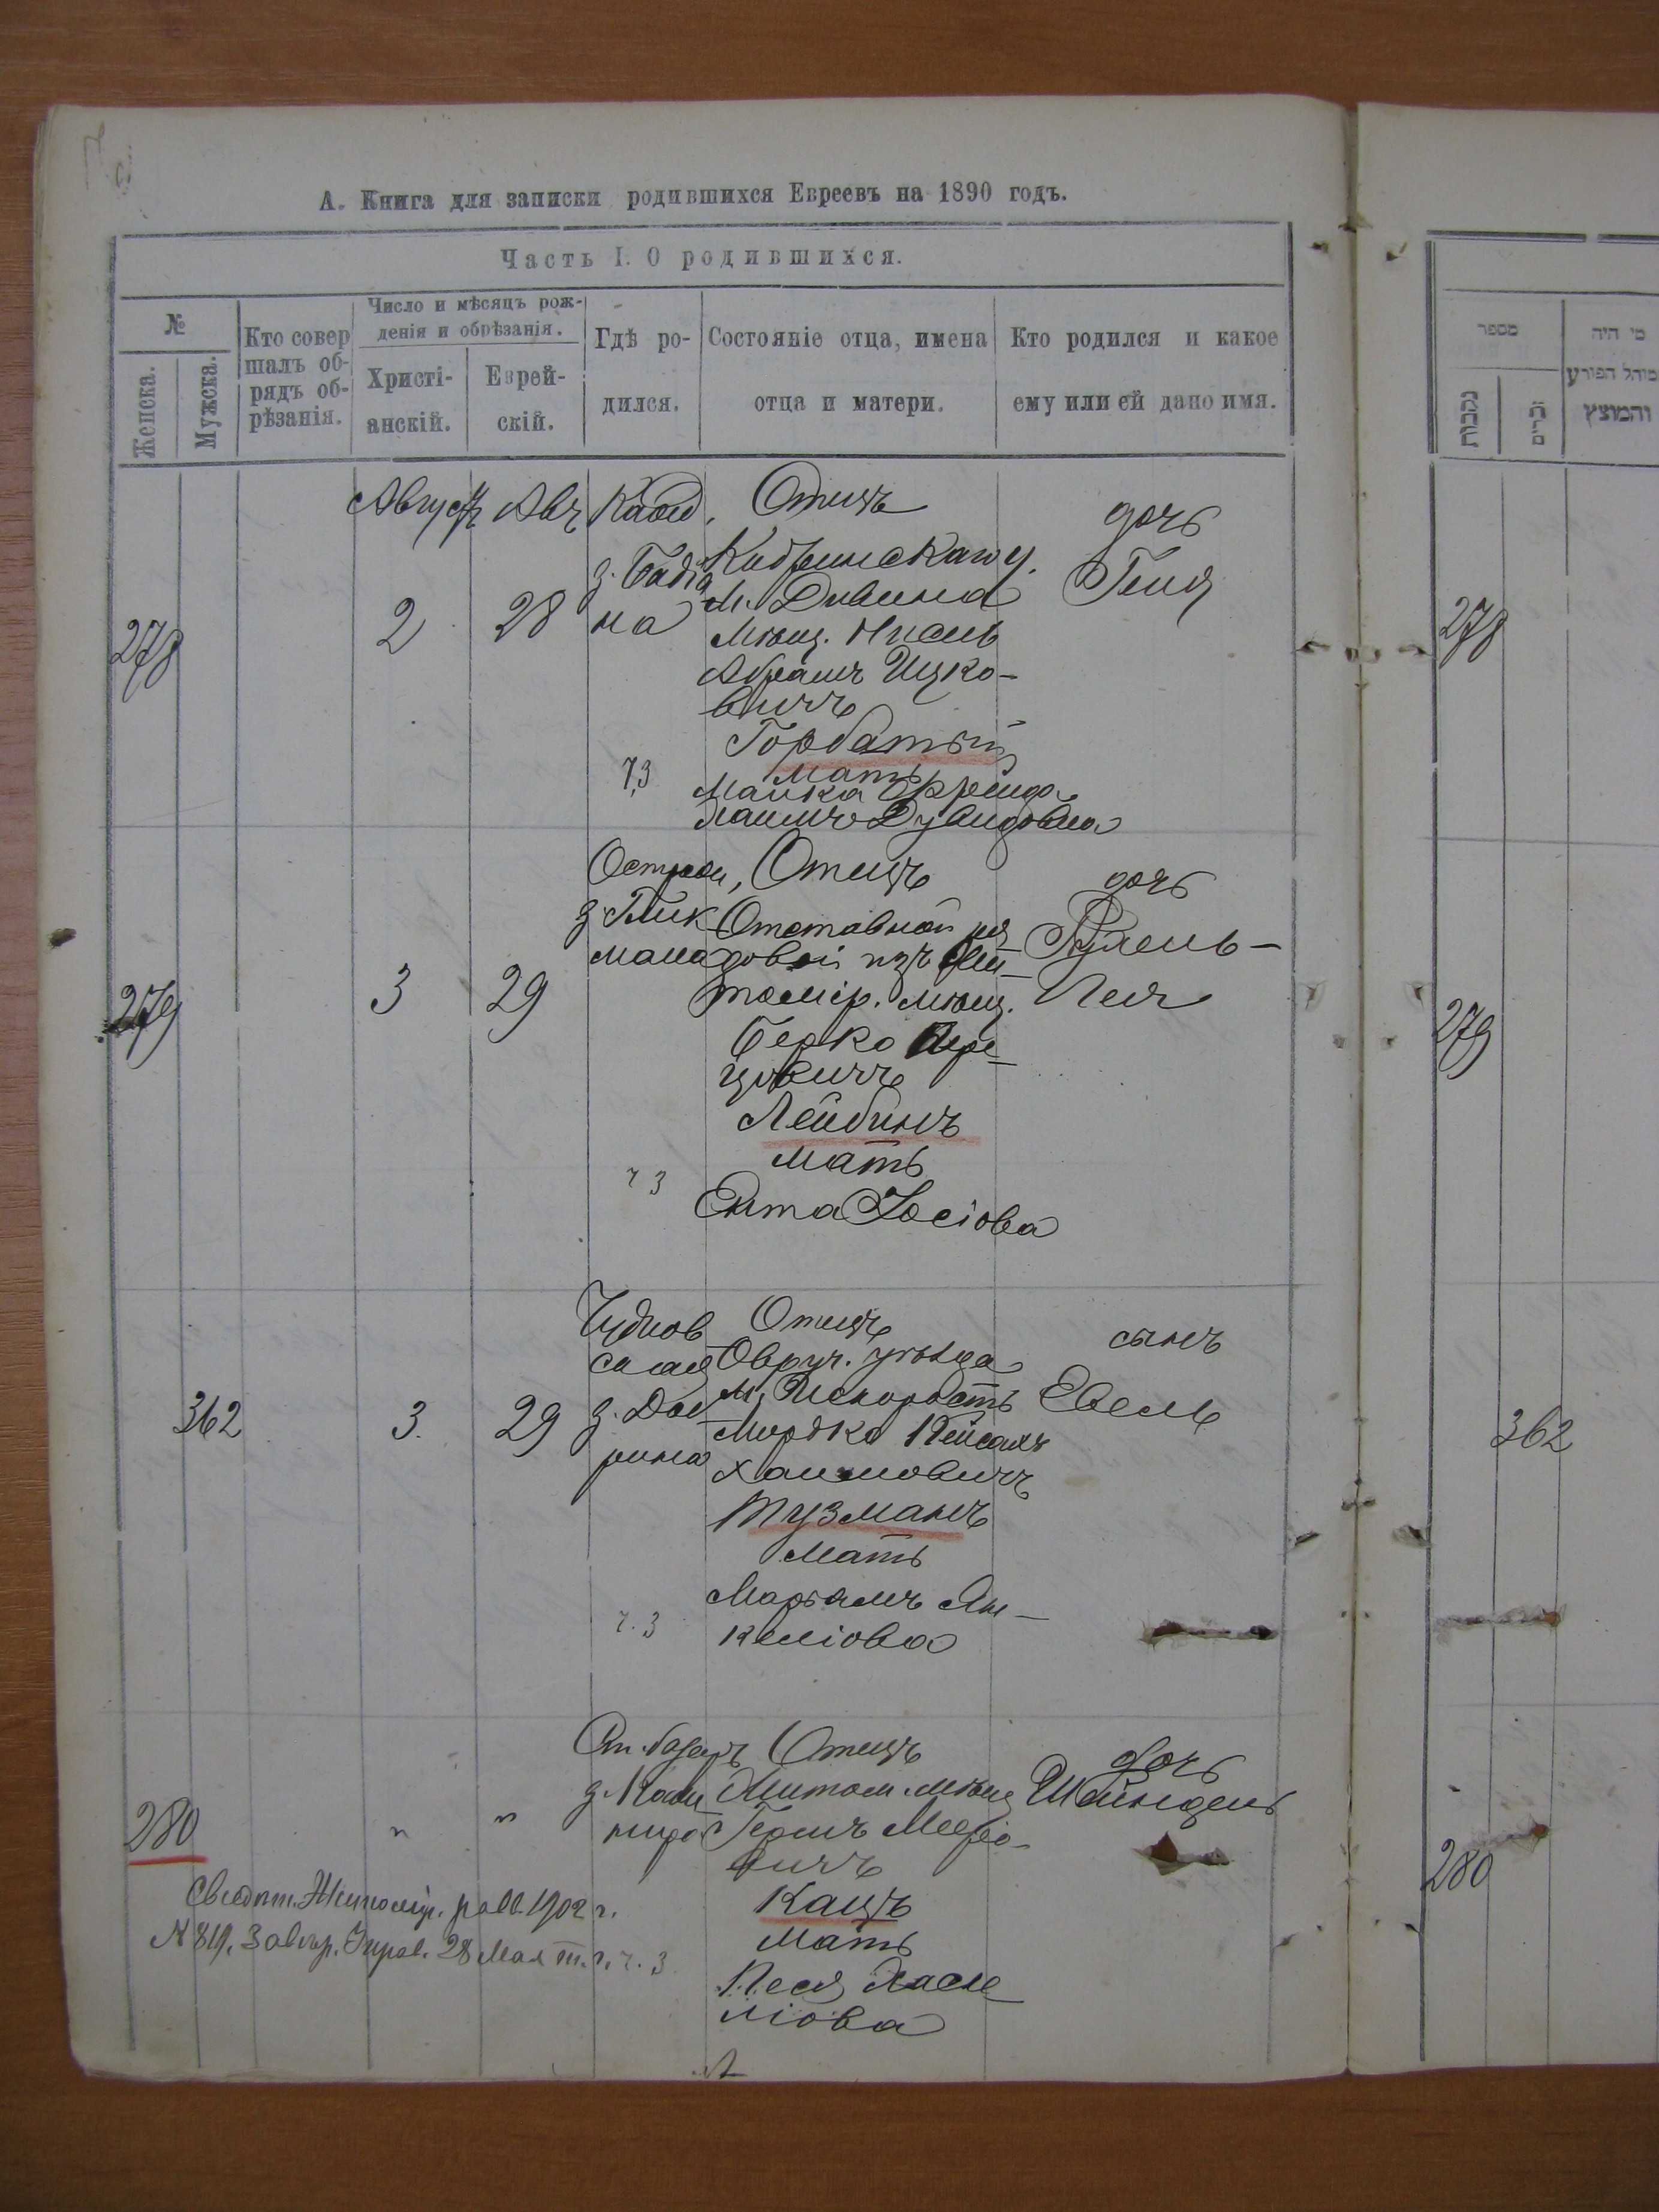 А. Книга для записки родившихся Евреевъ на 1890 годъ.
Часть I. О родившихся.
№
Женска.
Мужска.
Кто совер
шалъ об-
рядъ об-
рѣзанія.
Число и мѣсяцъ рож-
денія и обрѣзанія.
Христі-
анскій.
Еврей-
скій.
Гдѣ ро-
дился.
Состояніе отца, имена
отца и матери.
Кто родился и какое
ему или ей дано имя.
278
Августъ
2
Авъ
28
на
ч.3
Отецъ
Кобринскаго у.
м. Дивина
Мѣщ. Нисель
Абрамъ Ицко-
вичъ
Горбатый
мать
Малка Фрейда
Дувидовна
дочь
Геня
279
3
29
Отецъ
Отставной ря
довой изъ Жи-
томір. мѣщ.
Берко
цовичъ
Лейбинъ
мать
Ента Іосіова
ч 3
дочь
Песя
362
3.
29
Чуднов
ская
ч. 3
Отецъ
Овруч. уѣзда
м. Искорость
Мордко Пейсахъ
Хаимовичъ
Тузманъ
Мать
Марьямъ Ян-
келіова
сынъ
Евель
280
"
"
Ст. базаръ
Отецъ
Житом. мѣщ
Гершъ Мееро-
вичъ
Кацъ
Мать
Песя Хаске-
ліова
дочь
Шейндель
Свидѣт. Житомір. равв. 1902 г.
№ 819. Завѣр. Управ. 28 Мая т. г.
ч. 3
מספר
נקבות
זכרים
מי היה
מוהל הפורע
והמוצץ
278
279
362
280